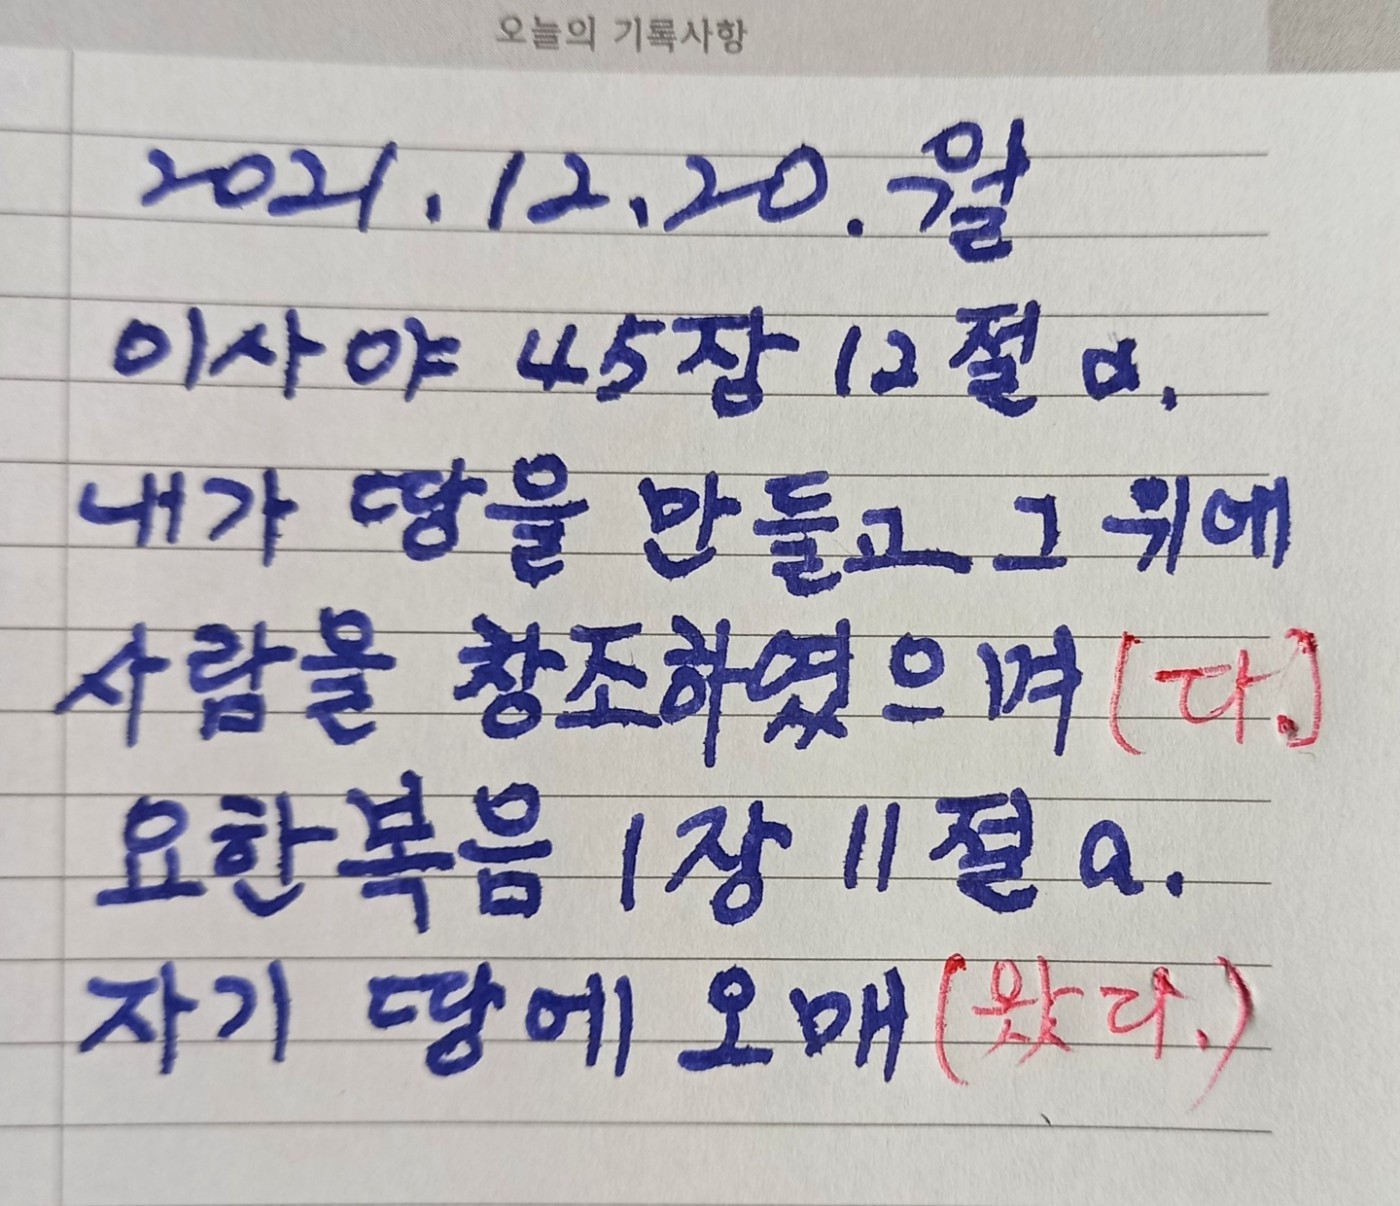 오늘의 기록사항
2021.12.20.월
이사야 45장 12절 a.
내가 땅을 만들고 그 위에
사람을 창조하였으며 [다.]
요한복음 1장 11절 a.
자기 땅에 오매 (왔다.)